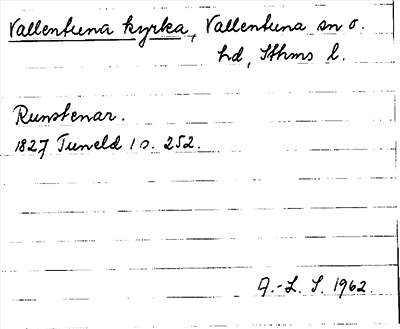 Vallentuna kyrka, Vallentuna sn o.
hd, Sthms l.
Runstenar.
1827 Tuneld 1 o. 252.
A.-L. S. 1962.